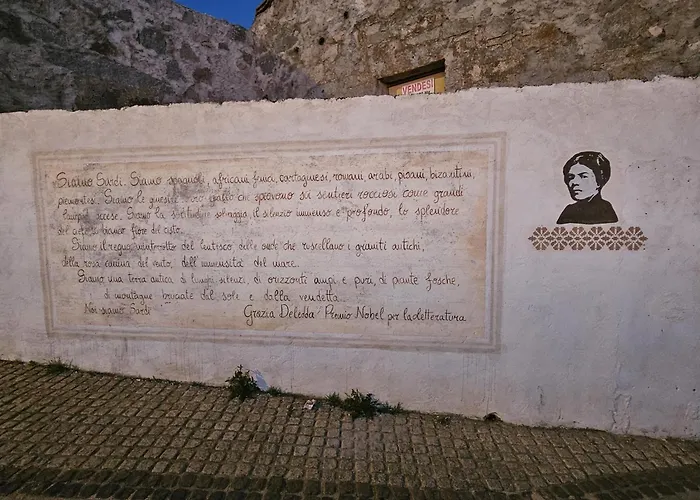 VENDESI
Siamo Sardi. Siamo spagnoli, africani, fenici, cartaginesi, romani, arabi, pisani, bizantini,
piemontesi. Siamo le ginestre d'oro giallo che spiovono sui sentieri rocciosi come grandi
lampade accese. Siamo la solitudine selvaggia, il silenzio immenso e profondo, lo splendore
del cielo, il bianco fiore del cisto.
Siamo il regno ininterrotto del lentisco, delle onde che ruscellano i graniti antichi,
della rosa canina, del vento, dell'immensità del mare.
Siamo una terra antica di lunghi silenzi, di orizzonti ampi e puri, di piante fosche,
di montagne bruciate dal sole e dalla vendetta.
Noi siamo Sardi
Grazia Deledda Premio Nobel per la letteratura